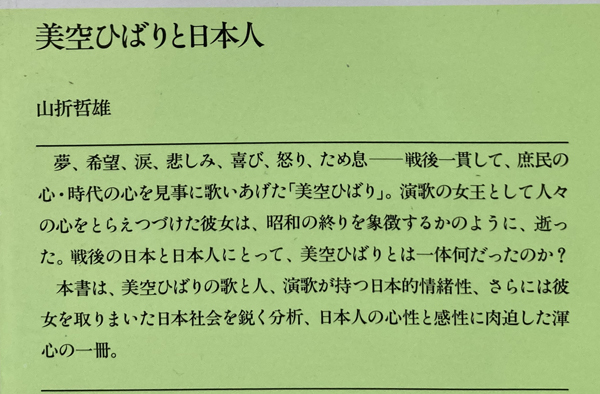 美空ひばりと日本人
山折哲雄
夢、希望、涙、悲しみ、喜び、怒り、ため息──戦後一貫して、庶民の
心・時代の心を見事に歌いあげた「美空ひばり」。演歌の女王として人々
の心をとらえつづけた彼女は、昭和の終りを象徴するかのように、逝っ
た。戦後の日本と日本人にとって、美空ひばりとは一体何だったのか？
本書は、美空ひばりの歌と人、演歌が持つ日本的情緒性、さらには彼
女を取りまいた日本社会を鋭く分析、日本人の心性と感性に肉迫した渾
心の一冊。